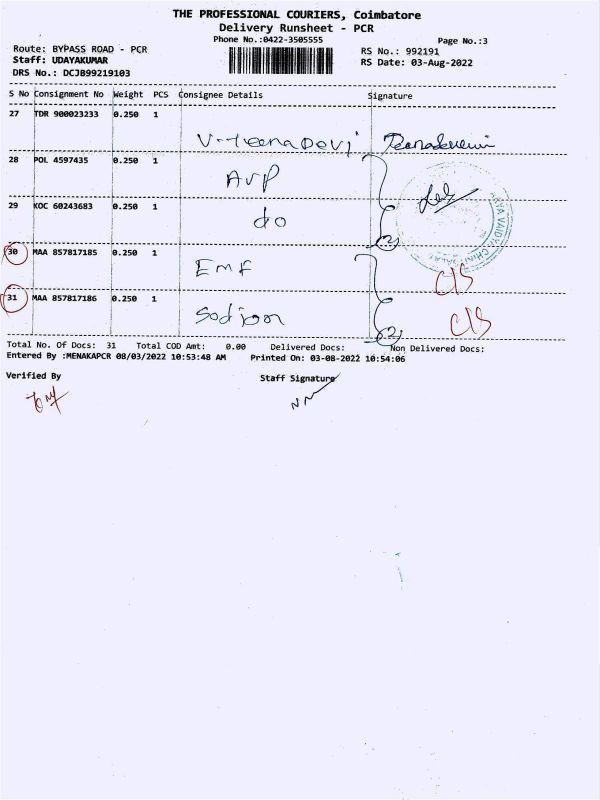 THE PROFESSIONAL COURIERS, Coimbatore
Delivery Runsheet - PCR
Phone No.:0422-3505555
Page No.:3
Route: BYPASS ROAD - PCR
RS No.: 992191
Staff: UDAYAKUMAR
RS Date: 03-Aug-2022
DRS No.: DCJB99219103
S No Consignment No Weight PCS Consignee Details Signature
27 TDR 900023233 0.250 1
V-TeenaDevi
28 POL 4597435 0.250 1
AVP
29 KOC 60243683 0.250 1
do
(2)
30 MAA 857817185 0.250 1
EMF
C/S
31 MAA 857817186 0.250 1
Sodion
C/S
(2)
Total No. Of Docs: 31 Total COD Amt: 0.00 Delivered Docs: Non Delivered Docs:
Entered By :MENAKAPCR 08/03/2022 10:53:48 AM Printed On: 03-08-2022 10:54:06
Verified By Staff Signature